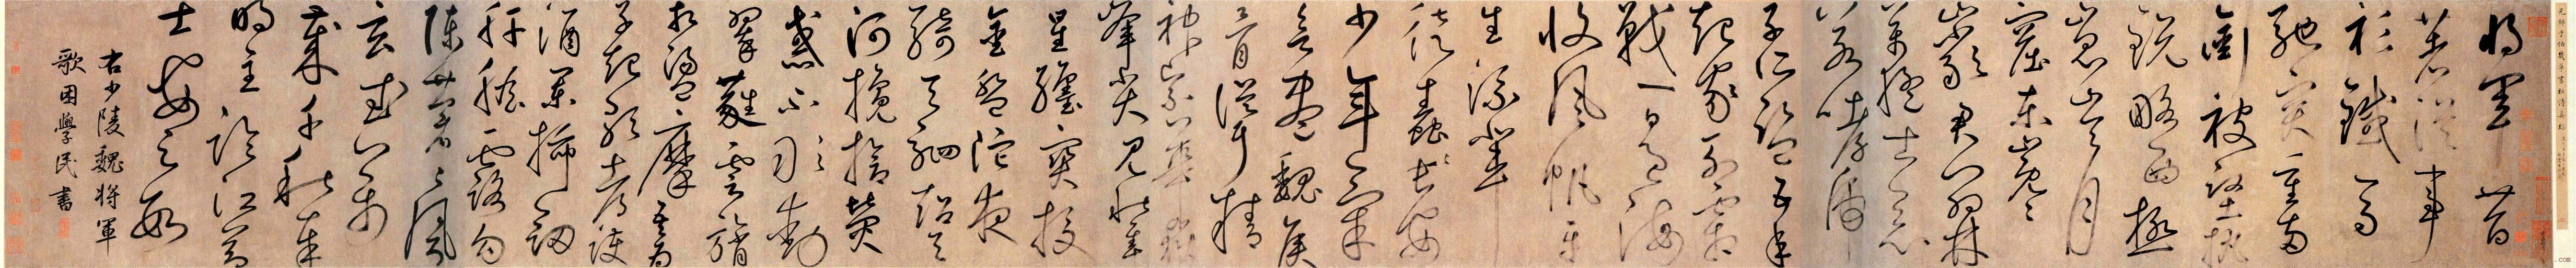 將軍昔
著從事
衫鐵馬
馳突重兩
銜被堅執
銳略西極
崑崙月
窟東嶄
巖君門羽林
萬猛士惡
若哮虎
子所監五年
起家列霜
戟一日過海
收風帆平
生流輩
徒蠢蠢長安
少年氣
欲盡魏侯
骨聳精
爽緊華嶽
峯尖見秋隼
星纏寶校
金盤陀夜
騎天駟超天
河攙搶熒
惑不敢動
翠蕤雲旓
相蕩摩吾為
子起歌都護
酒闌插劍
肝膽露勾
陳蒼蒼風
玄武暮萬
歲千秋奉
明主臨江節
士安足數
右少陵魏將軍
歌困學民書